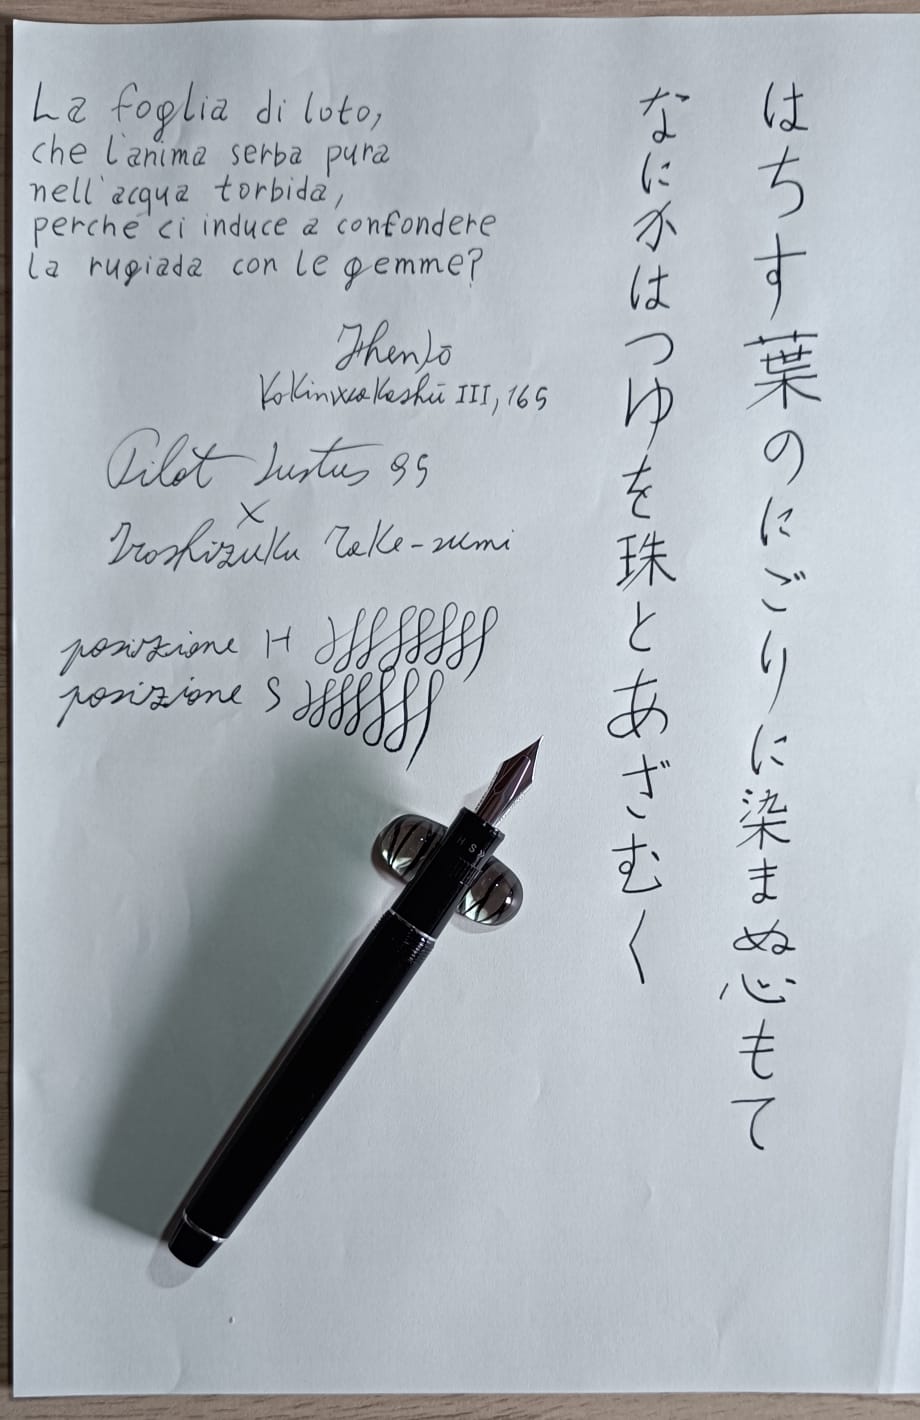 La foglia di loto,
che l'anima serba pura
nell'acqua torbida,
perché ci induce a confondere
la rugiada con le gemme?
Henjō
Kokinwakashū III, 165
Pilot Justus 95
×
Iroshizuku Take-sumi
posizione H
posizione S
はちす葉のにごりに染まぬ心もて
なにかはつゆを珠とあざむく
H S